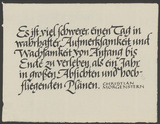 Es ist viel schwerer, einen Tag in
wahrhafter Aufmerksamkeit und
Wachsamkeit von Anfang bis
Ende zu verleben, als ein Jahr
in großen Absichten und hoch-
fliegenden Plänen.
CHRISTIAN
MORGENSTERN